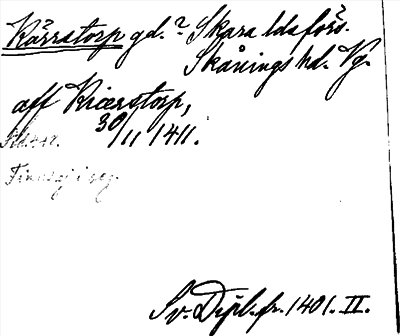 Kärrstorp gd.? Skara ldsförs.
Skånings hd. Vg.
aff Kiærstorp,
30/11 1411.
Finnes ej i reg.
Sv. Dipl. fr. 1401. II.